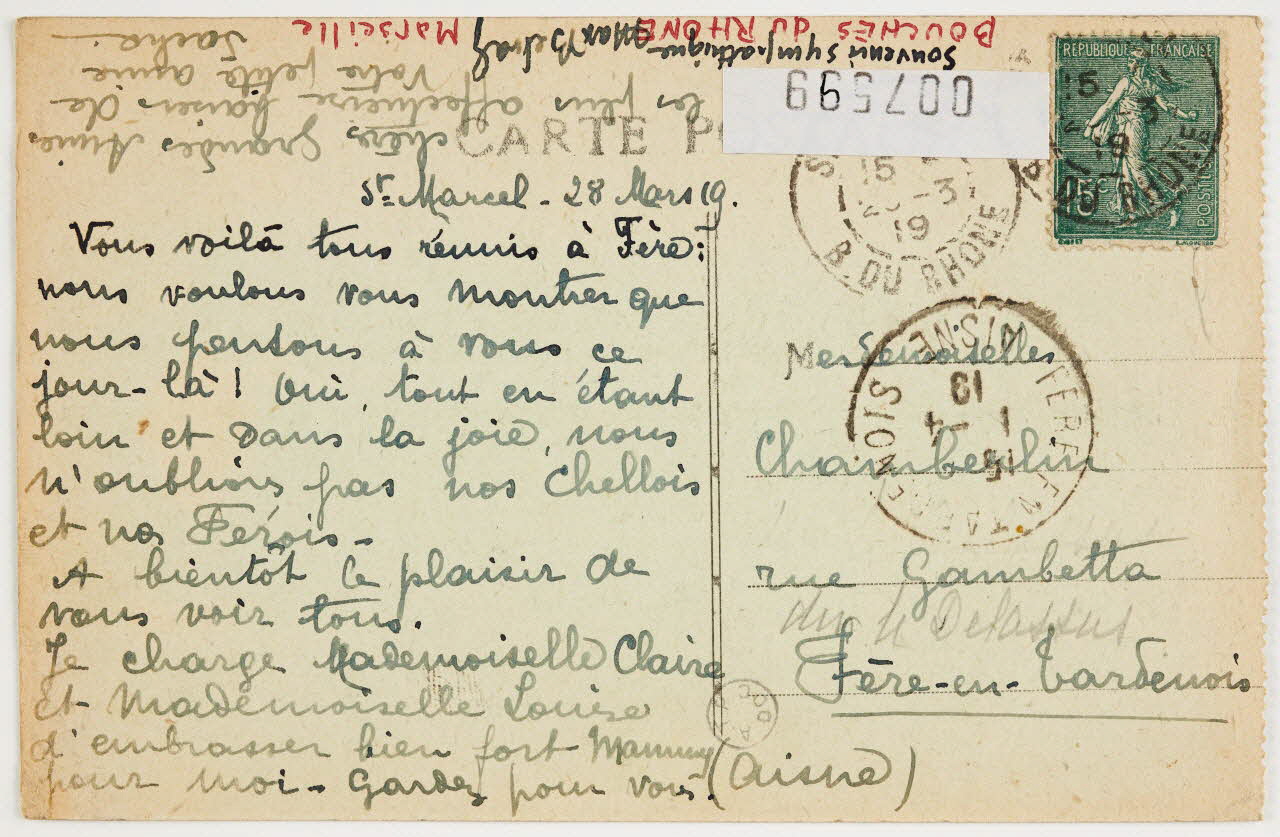 BOUCHES DU RHÔNE Marseille
007599
CARTE PO
REPUBLIQUE FRANÇAISE
15c
POSTES
B. DU RHONE
15
19
St Marcel - 28 Mars 19.
Vous voilà tous réunis à Fère:
nous voulons vous montrer que
nous pensons à vous ce
jour-là! Oui, tout en étant
loin et dans la joie, nous
n'oublions pas nos Chellois
et nos Férois -
A bientôt le plaisir de
vous voir tous.
Je charge Mademoiselle Claire
et Mademoiselle Louise
d'embrasser bien fort
pour moi - Gardez pour vous
chères Grandes Amies
les plus affectueux baisers de
Votre petite amie
Souvenir sympathique
Mesdemoiselles
Chamberlin
rue Gambetta
Delassus
Fère-en-Tardenois
(Aisne)
FERE EN TARDENOIS
AISNE
15
1 - 4
19